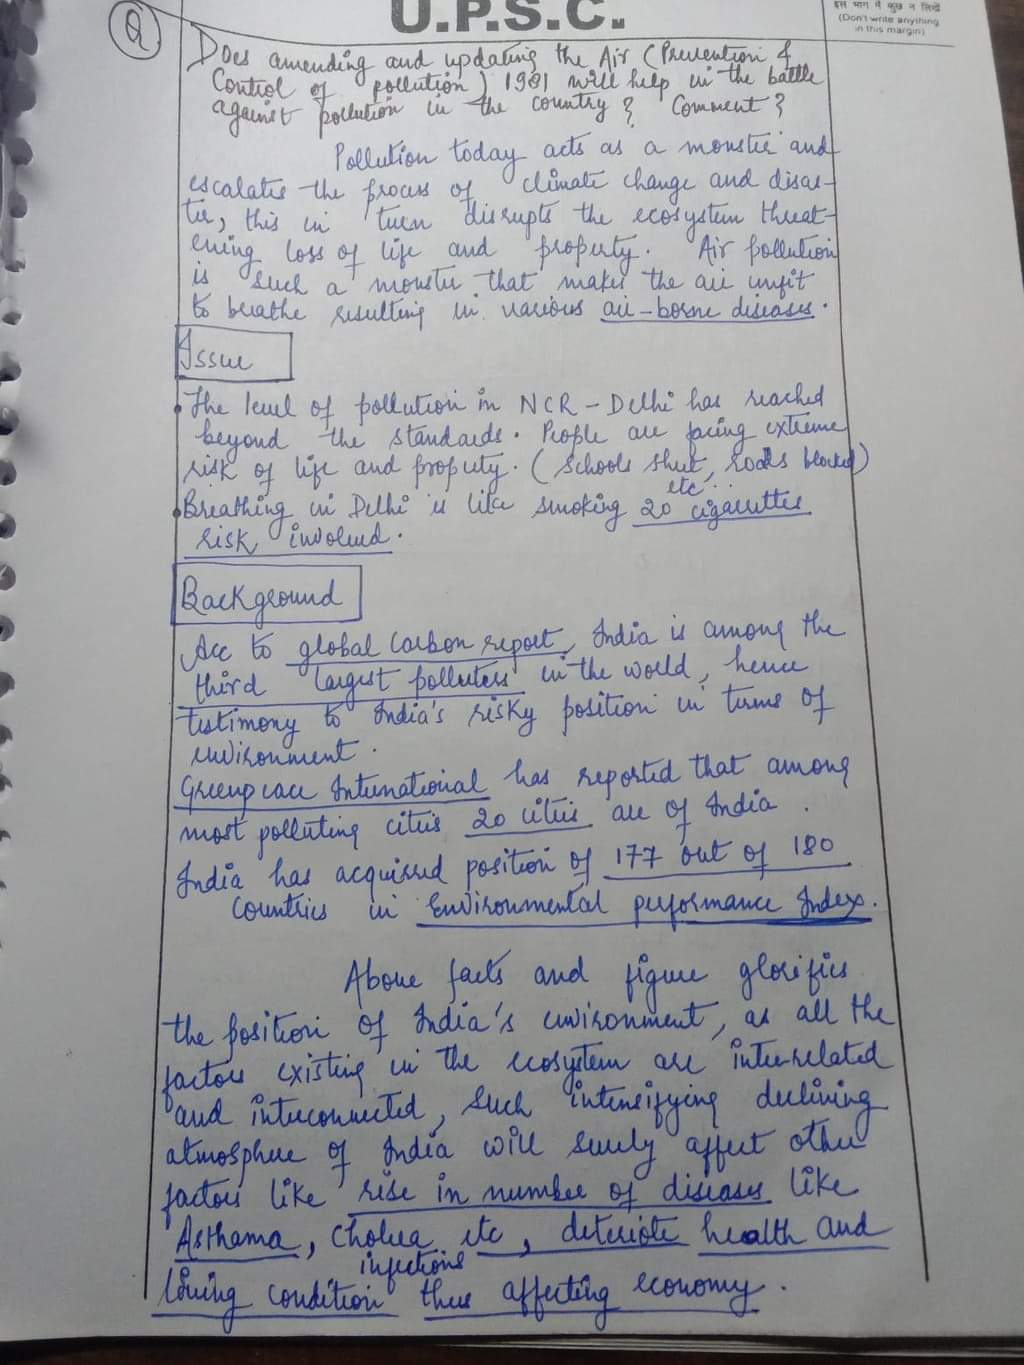 U.P.S.C.
इस भाग में कुछ न लिखें
(Don't write anything
in this margin)
Q
Does amending and updating the Air (Prevention &
Control of pollution) 1981 will help in the battle
against pollution in the country? Comment?
Pollution today acts as a monster and
escalates the process of climate change and disas-
ter, this in turn disrupts the ecosystem threat-
ening loss of life and property. Air pollution
is such a monster that makes the air unfit
to breathe resulting in various air-borne diseases.
Issue
• The level of pollution in NCR-Delhi has reached
beyond the standards. People are facing extreme
risk of life and property. (Schools shut, roads blocked)
etc...
• Breathing in Delhi is like smoking 20 cigarettes
risk involved.
Background
Acc to global carbon report, India is among the
third largest polluters in the world, hence
testimony to India's risky position in terms of
environment.
Greenpeace International has reported that among
most polluting cities 20 cities are of India.
India has acquired position of 177 out of 180
countries in Environmental performance Index.
Above facts and figure glorifies
the position of India's environment, as all the
factors existing in the ecosystem are inter-related
and interconnected, such intensifying declining
atmosphere of India will surely affect other
factors like rise in number of diseases like
Asthama, cholera etc, deteriote health and
infections
living condition thus affecting economy.